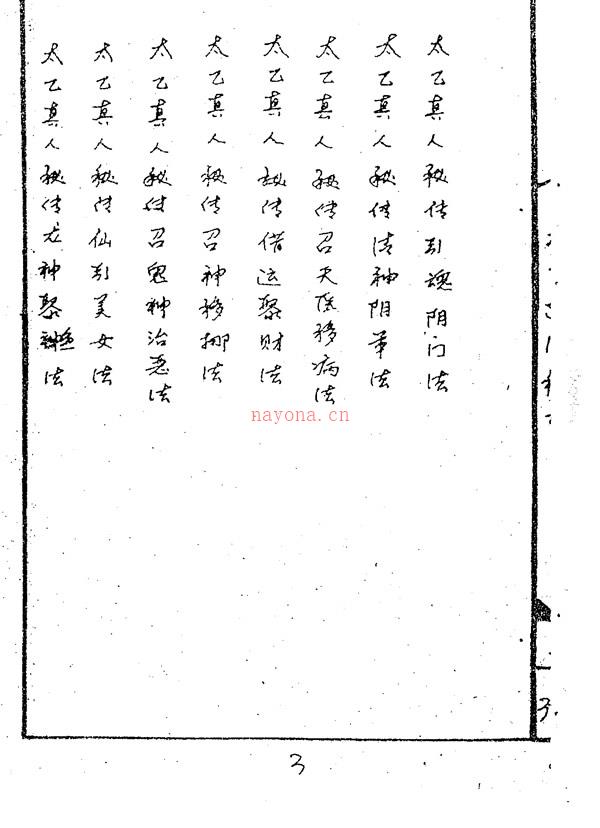 太乙真人秘传引魂阴门法
太乙真人秘传请神阴箓法
太乙真人秘传召天医移病法
太乙真人秘传借运聚财法
太乙真人秘传召神移挪法
太乙真人秘传召鬼神治恶法
太乙真人秘传仙引美女法
太乙真人秘传龙神聚法
nayona.cn
3